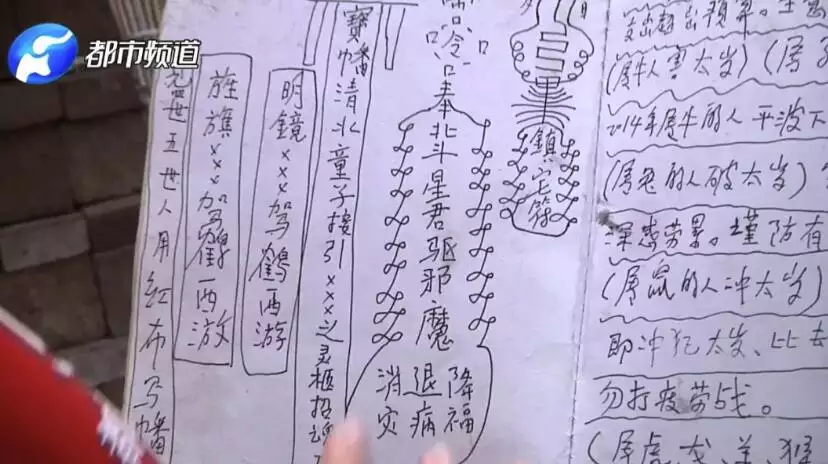 都市频道
鎮宅符
奉北斗星君驱邪魔
降福
退病
消灾
寶幡清北童子接引×××之灵柩招魂
明鏡×××驾鹤西游
旌旗×××驾鶴西游
五世人用紅布写幡
支出超出预算。
(属牛人害太岁)(属
2014年属牛的人平波下
(属兔的人破太岁)
深感劳累。谨防有
(属鼠的人冲太岁)
即冲犯太岁、比去
勿打疲劳战。
(属虎、龙、羊、猴